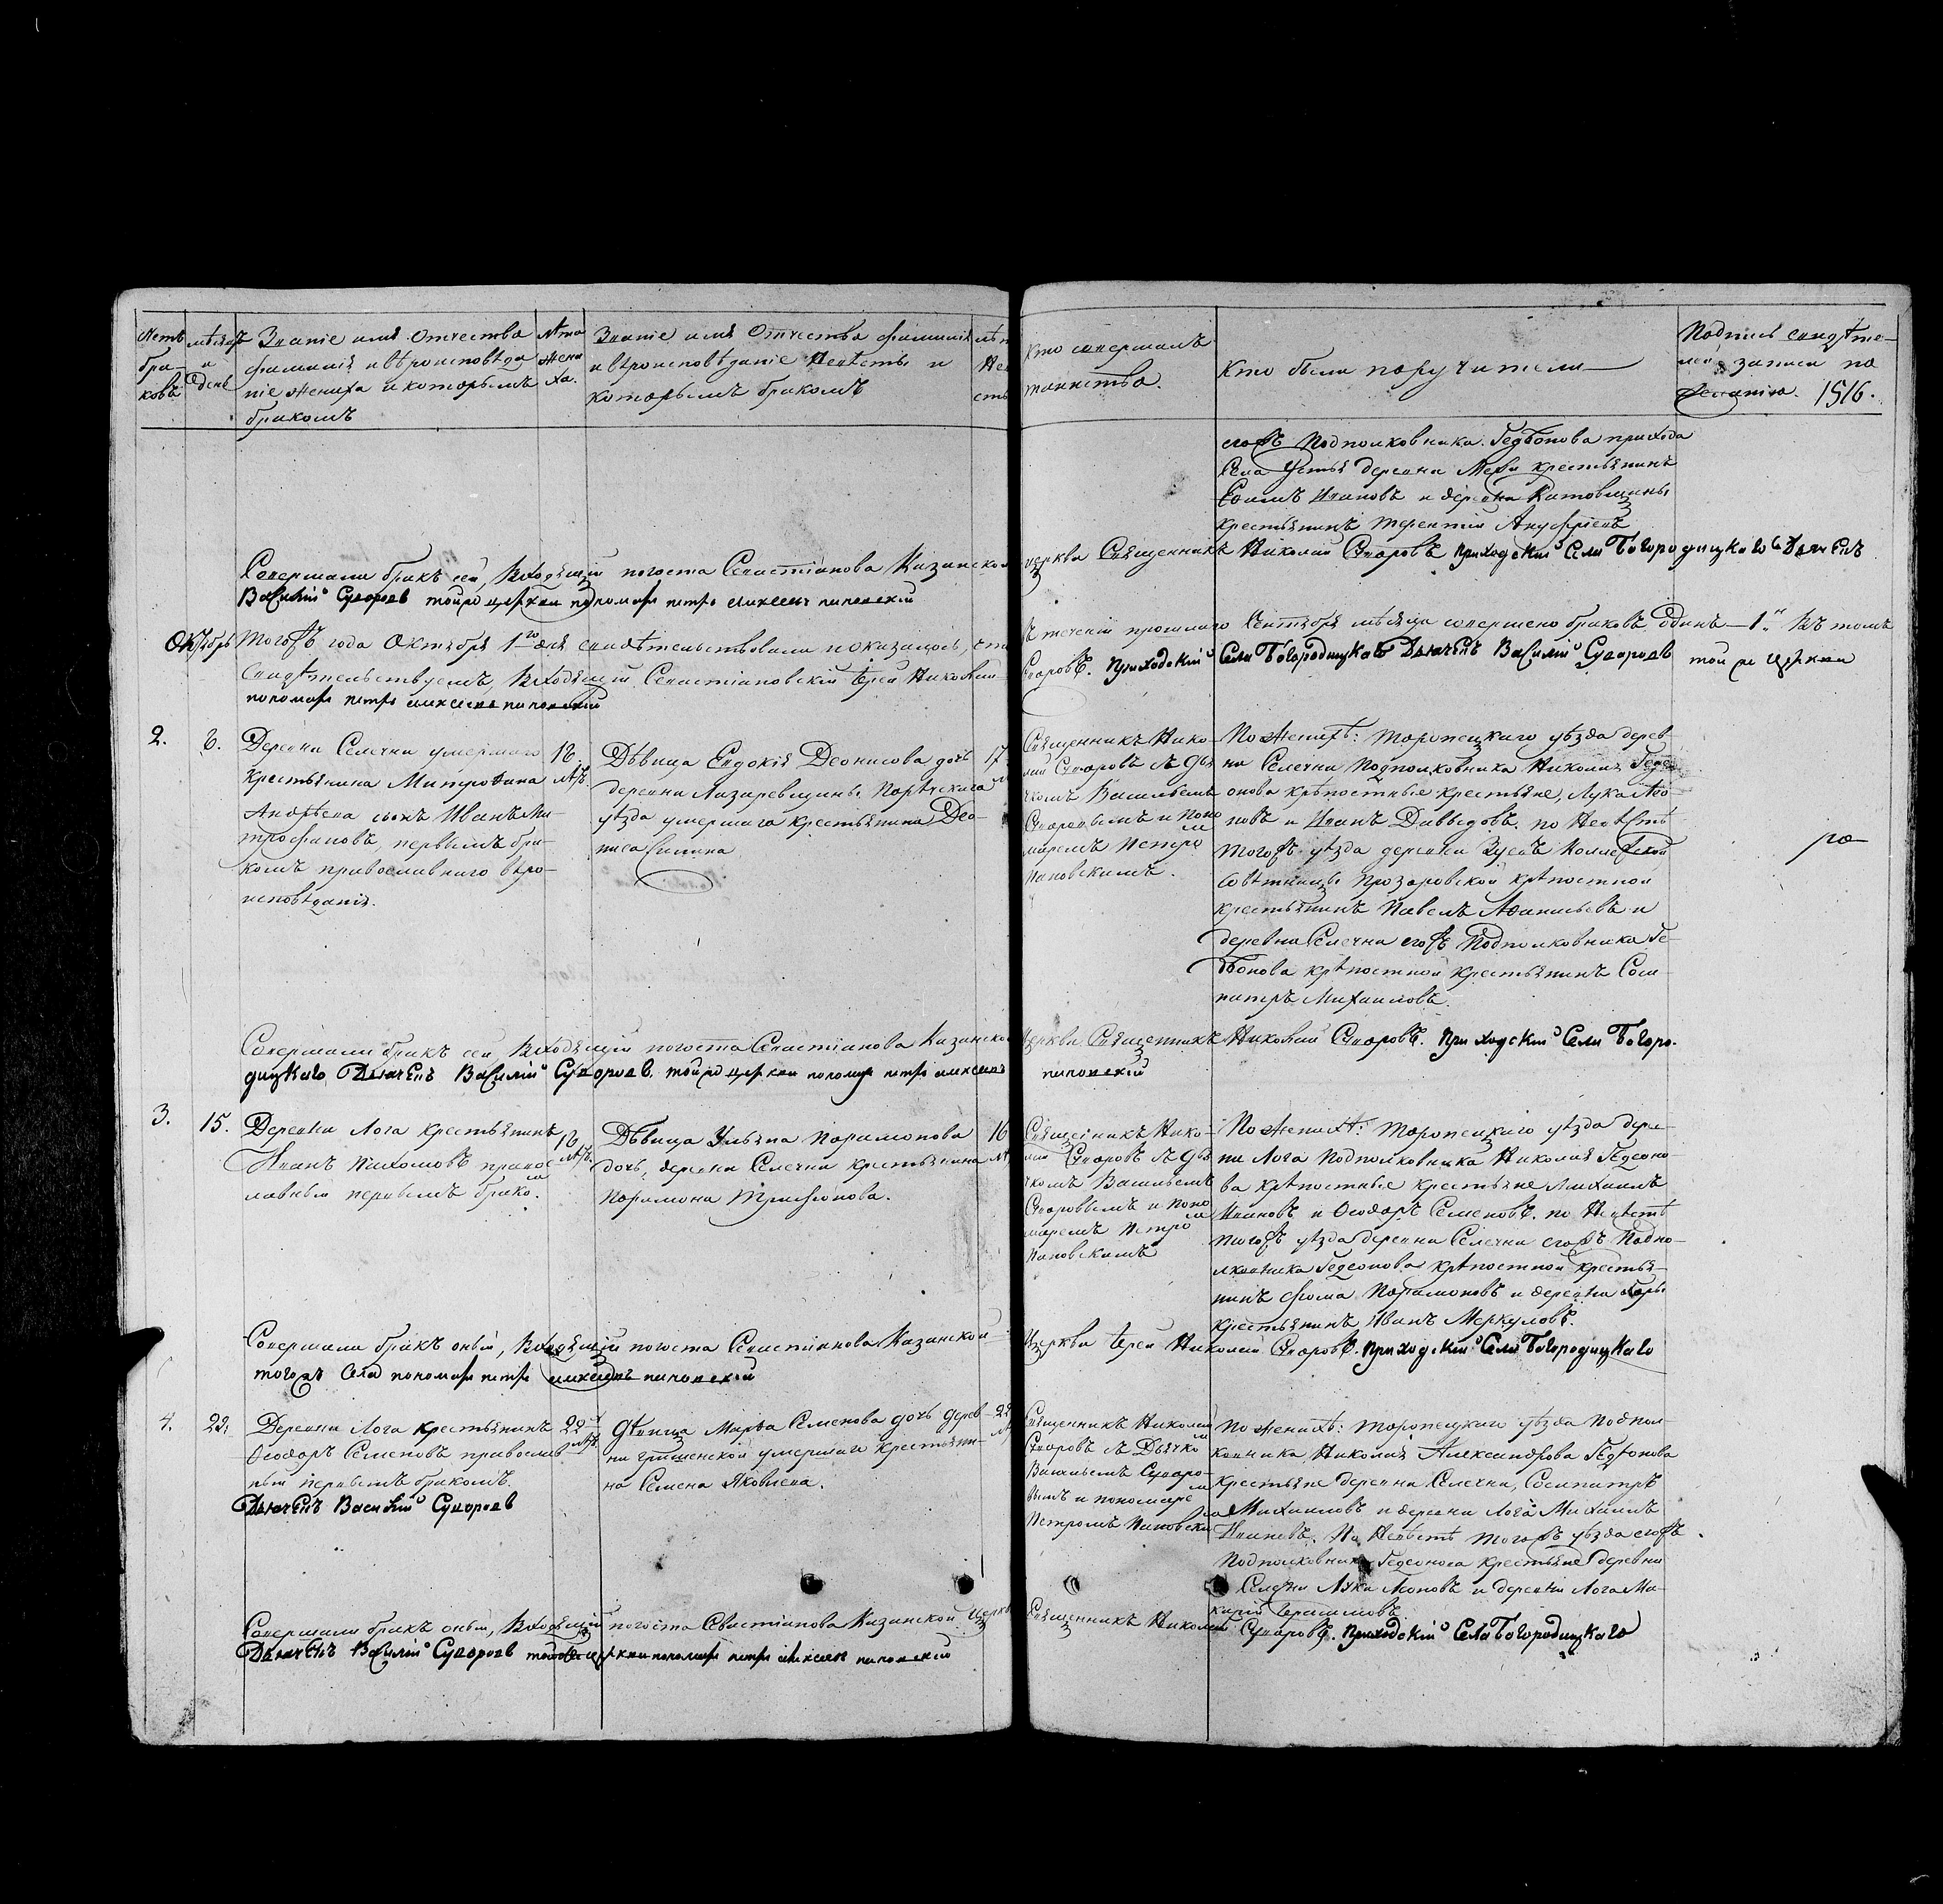 Счетъ
бра-
ковъ
мѣсяцъ
и
день
Званіе имя Отчество
фамилія и вѣроисповѣда
ніе жениха и которымъ
бракомъ
Лѣта
жени
ха.
Званіе имя Отчество фамилія
и вѣроисповѣданіе Невѣсты и
которымъ бракомъ
Кто совершалъ
таинство.
Кто были поручители
Подпись свидѣте-
лей записи по
желанію. 1516.
егожъ Подполковника Гедѣонова прихода
Села Устья деревни крестьянинъ
Ивановъ и деревни Катовщины
крестьянинъ Терентій Ануфріевъ
Совершали бракъ сей, Входящій погоста Севастіанова Казанской
церкви Священникъ Николай Суворовъ приходскій Села Богородицкаго Дьячекъ
Василій Суворовъ тойже церкви пономарь петръ алексеевъ пановскій
Октябрь
Тогожъ года Октября 1го дня свидѣтельствовали и оказалось, что
въ теченіи прошлаго Сентября мѣсяца совершено браковъ Одинъ - 1. Въ томъ
Свидѣтельствуемъ, Входящій Севастіановскій Іерей Николай
Суворовъ. Приходскій Села Богородицкаго Дьячекъ Василій Суворовъ той же церкви
пономарь петръ алексеевъ пановскій
2.
6.
Деревни Селечни умершаго
крестьянина Митрофана
Андрѣева сынъ Иванъ Ми-
трофановъ, первымъ бра-
комъ православнаго вѣро-
исповѣданія.
18.
лѣтъ.
Дѣвица Евдокія Деонисова дочь
деревни Лазаревщины Порѣчскаго
уѣзда умершаго крестьянина Део-
ниса
17
Священникъ Нико-
лай Суворовъ съ дья
чкомъ Васильемъ
Суворовымъ и Поно
маремъ Петромъ
Пановскимъ.
По Женихѣ: Торопецкаго уѣзда дерев-
ни Селечни Подполковника Николая Геде-
онова крѣпостные крестьяне, Лука Лео-
новъ и Иванъ Давыдовъ. по Невѣстѣ
тогожъ уѣзда деревни Зуевъ Коллежской
Совѣтницы Прозоровской крѣпостной
крестьянинъ Павелъ Афанасьевъ и
деревни Селечни егожъ Подполковника Ге-
дѣонова крѣпостной крестьянинъ Соси-
патръ Михаиловъ.
Совершали бракъ сей, Входящій погоста Севастіанова Казанской
церкви Священникъ Николай Суворовъ. Приходскій Села Богоро-
дицкаго Дьячекъ Василій Суворовъ. тойже церкви пономарь петръ алексеевъ
пановскій
3.
15.
Деревни Лога крестьянинъ
Иванъ Пахомовъ правос-
лавный первымъ бракомъ.
18
лѣтъ.
Дѣвица Ульяна Парамонова
дочь, деревни Селечни крестьянина
Парамона Трифонова.
16
Священникъ Нико-
лай Суворовъ съ дья
чкомъ Васильемъ
Суворовымъ и Поно
маремъ Петромъ
Пановскимъ
По Женихѣ: Торопецкаго уѣзда дерев-
ни Лога Подполковника Николая Гедеоно-
ва крѣпостные крестьяне Михаилъ
Ивановъ и Ѳеодоръ Семеновъ. по Невѣстѣ
тогожъ уѣзда деревни Селечни егожъ Подпо-
лковника Гедеонова крѣпостной крестья-
нинъ Фома Парамоновъ и деревни
крестьянинъ Иванъ Меркуловъ.
Совершали бракъ оный, Входящій погоста Севастіанова Казанской
Церкви Іерей Николай Суворовъ. Приходскій Села Богородицкаго
тогожъ Села пономарь петръ алексеевъ пановскій
4.
22.
Деревни Лога крестьянинъ
Ѳеодоръ Семеновъ православ-
ный первымъ бракомъ.
Дьячекъ Василій Суворовъ
22
лѣтъ
Дѣвица Марѳа Семенова дочь дерев-
ни Гришенской умершаго крестьяни-
на Семена Яковлева.
22
Священникъ Николай
Суворовъ съ Дьячкомъ
Васильемъ Суворо-
вымъ и пономаремъ
Петромъ Пановским
По Женихѣ: Торопецкаго уѣзда Подпол-
ковника Николая Александрова Гедѣонова
крестьяне деревни Селечни, Сосипатръ
Михаиловъ и деревни Лога Михаилъ
Ивановъ. По Невѣстѣ тогожъ уѣзда егожъ
Подполковника Гедеонова крестьяне деревни
Селечни Лука Леоновъ и деревни Лога Ма-
карій Герасимовъ.
Совершали бракъ оный, Входящій погоста Севастіанова Казанской Церкви
Священникъ Николай Суворовъ. Приходскій Села Богородицкаго
Дьячекъ Василій Суворовъ тойже церкви пономарь петръ алексеевъ пановскій